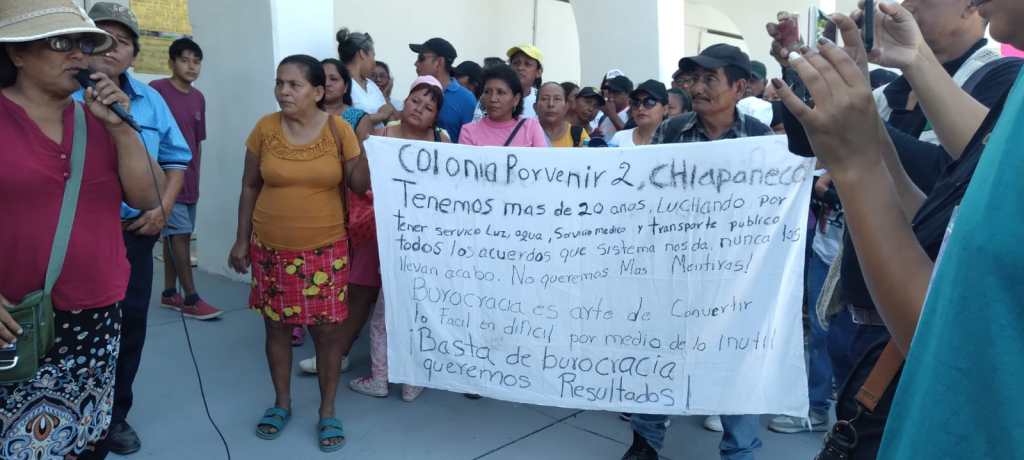 Colonia Porvenir 2, CHIapaneco
Tenemos mas de 20 anos, Luchando por
tener servico Luz, agua, Servico medico y transporte publico
todos los acuerdos que sistema nos da, nunca los
llevan acabo. No queremos Mas Mentiras!
Burocracia es arte de Convertir
lo Facil en dificil por medio de lo Inutil
¡Basta de burocracia
queremos Resultados!